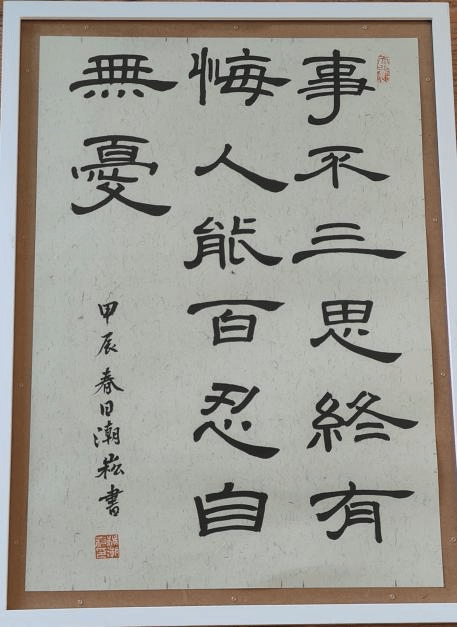 事不三思終有
悔人能百忍自
無憂
甲辰春日潮崧書